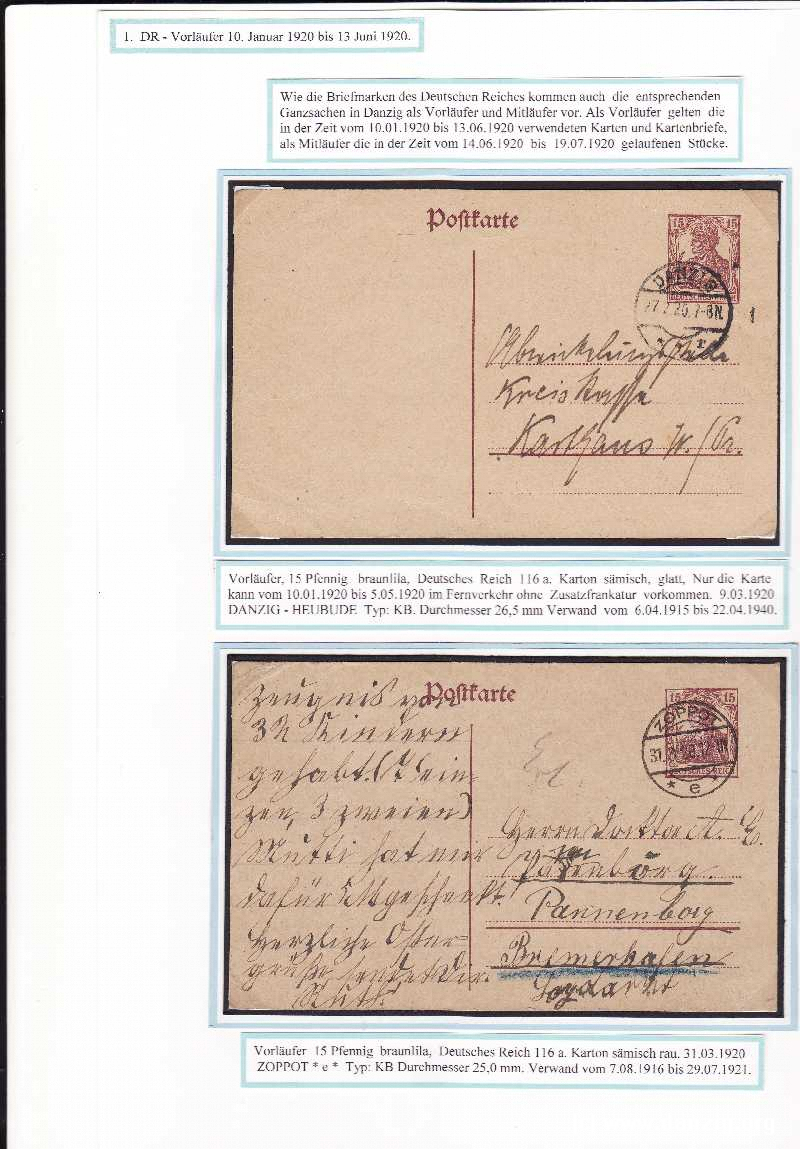 1. DR - Vorläufer 10. Januar 1920 bis 13 Juni 1920.
Wie die Briefmarken des Deutschen Reiches kommen auch die entsprechenden
Ganzsachen in Danzig als Vorläufer und Mitläufer vor. Als Vorläufer gelten die
in der Zeit vom 10.01.1920 bis 13.06.1920 verwendeten Karten und Kartenbriefe,
als Mitläufer die in der Zeit vom 14.06.1920 bis 19.07.1920 gelaufenen Stücke.
Postkarte
15 15
DANZIG
7-8N.
Kreiskasse
Karthaus W./Pr.
Vorläufer, 15 Pfennig braunlila, Deutsches Reich 116 a. Karton sämisch, glatt, Nur die Karte
kann vom 10.01.1920 bis 5.05.1920 im Fernverkehr ohne Zusatzfrankatur vorkommen. 9.03.1920
DANZIG - HEUBUDE Typ: KB. Durchmesser 26,5 mm Verwand vom 6.04.1915 bis 22.04.1940.
Postkarte
15
ZOPPOT
DEUTSCHES REICH
* e
Zeugnis von
32 Kindern
gehabt. (7 ein-
zen, 3 zweien)
Mutti hat mir
dafür geschenkt!
Herzliche Oster-
grüße sendet Dir
Ruth.
Herrn Doktor A.
Pannenborg
Bremerhafen
Vorläufer 15 Pfennig braunlila, Deutsches Reich 116 a. Karton sämisch rau. 31.03.1920
ZOPPOT * e * Typ: KB Durchmesser 25,0 mm. Verwand vom 7.08.1916 bis 29.07.1921.